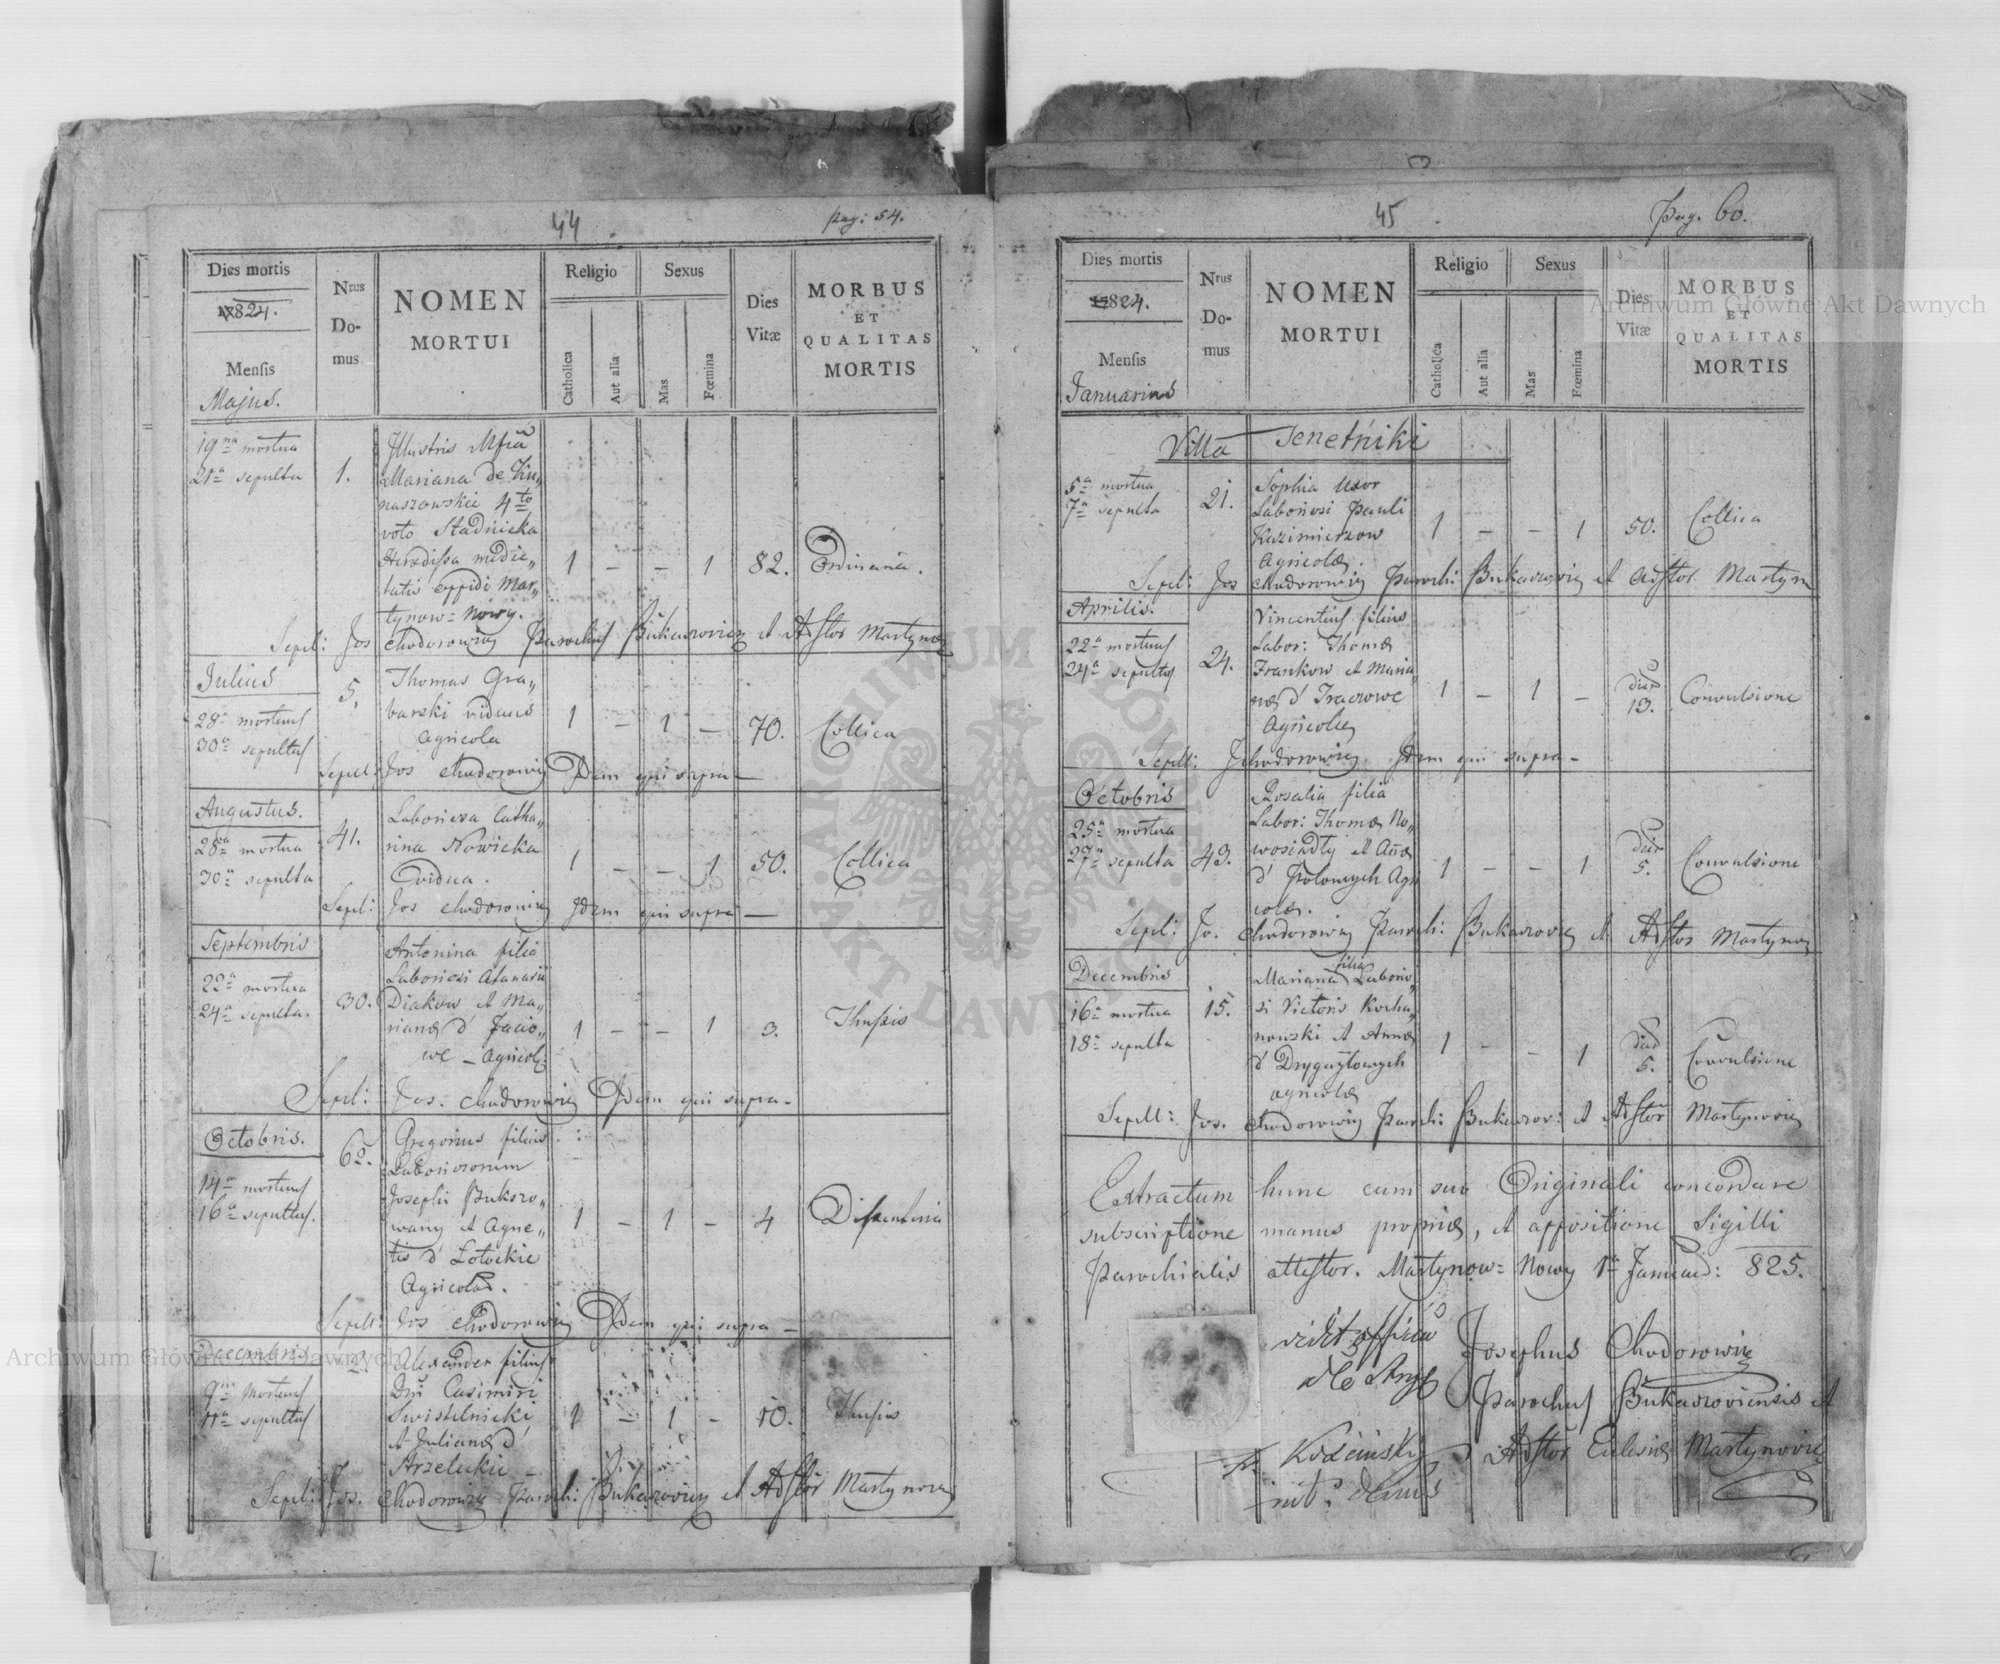 44
pag: 54.
Dies mortis
1824.
Mensis
Majus.
Nrus Domus
NOMEN
MORTUI
Religio
Catholica
Aut alia
Sexus
Mas
Fœmina
Dies Vitæ
MORBUS
ET
QUALITAS
MORTIS
19na mortua
21a sepulta
1.
Illustris Mfca
Mariana de Ku„
naszowskie 4to
voto Stadnicka
Heredissa medie„
tatis oppidi Mar„
tynow= Nowy.
1 – – 1
82.
Ordinaria.
Sepel: Jos Chodorowicz Parochus Bukaczovien et Adstor Martynov
Julius
28a mortuus
30a sepultus
5.
Thomas Gra„
barski viduus
Agricola
1 – 1 –
70.
Collica
Sepell: Jos Chodorowicz Idem qui supra –
Augustus.
28a mortua
30a sepulta
41.
Laboriosa Catha„
rina Nowicka
vidua.
1 – – 1
50.
Collica
Sepel: Jos Chodorowicz Idem qui supra –
Septembris
22a mortua
24a sepulta.
30.
Antonina filia
Laboriosi Atanasii
Diakow et Ma„
rianæ d'
we – Agricolæ
1 – – 1
3.
Thussis
Sepel: Jos. Chodorowicz Idem qui supra –
Octobris.
14a mortuus
16a sepultus.
62.
Gregorius filius
Laboriosorum
Josephi
wany et Agne„
tis d' Łotockie
Agricolæ.
1 – 1 –
4
Dissenteria
Sepell: Jos Chodorowicz Idem qui supra –
Decembris
9na Mortuus
11a sepultus
Alexander filius
Dni Casimiri
Swistelnicki
et Julianæ d'
Strzeleckie –
1 – 1 –
10.
Thussis
Sepel: Jos. Chodorowicz Paroch: Bukaczovien et Adstor Martynov
45
Pag. 60.
Dies mortis
1824.
Mensis
Januarius
Nrus Domus
NOMEN
MORTUI
Religio
Catholica
Aut alia
Sexus
Mas
Fœmina
Dies Vitæ
MORBUS
ET
QUALITAS
MORTIS
Villa Tenetniki
5a mortua
7a sepulta
21.
Sophia Uxor
Laboriosi Pauli
Kazimierzow
Agricolæ.
1 – – 1
50.
Collica
Sepel: Jos Chodorowicz Paroch: Bukaczovien et Adstor Martyn
Aprilis.
22a mortuus
24a sepultus
24.
Vincentius filius
Labor: Thomæ
Frankow et Maria„
næ d'
Agricolæ
1 – 1 –
dier 13.
Convulsione
Sepell: J Chodorowicz Idem qui supra –
Octobris
25a mortua
27a sepulta
43.
Rosalia filia
Labor: Thomæ No„
wosiadły et Annæ
d' Polowych Agri
colæ.
1 – – 1
dier 5.
Convulsione
Sepel: Jo. Chodorowicz Paroch: Bukaczovien et Adstor Martynov
Decembris
16a mortua
18a sepulta
15.
Mariana filia Laborio„
si Victoris Kocha„
nowski et Annæ
d' Drygayłowych
agricolæ
1 – – 1
dier 5.
Convulsione
Sepell: Jos. Chodorowicz Paroch: Bukaczov: et Adstor Martynovien
Extractum hunc cum suo Originali concordare
subscriptione manus propriæ, et appositione Sigilli
Parochialis attestor. Martynow= Nowy 1a Januarii: 825.
Josephus Chodorowicz
Parochus Bukaczoviensis et
Adstor Eclesiæ Martynovien
Archiwum Główne Akt Dawnych
Archiwum Główne Akt Dawnych
ARCHIWUM GŁÓWNE AKT DAWNYCH